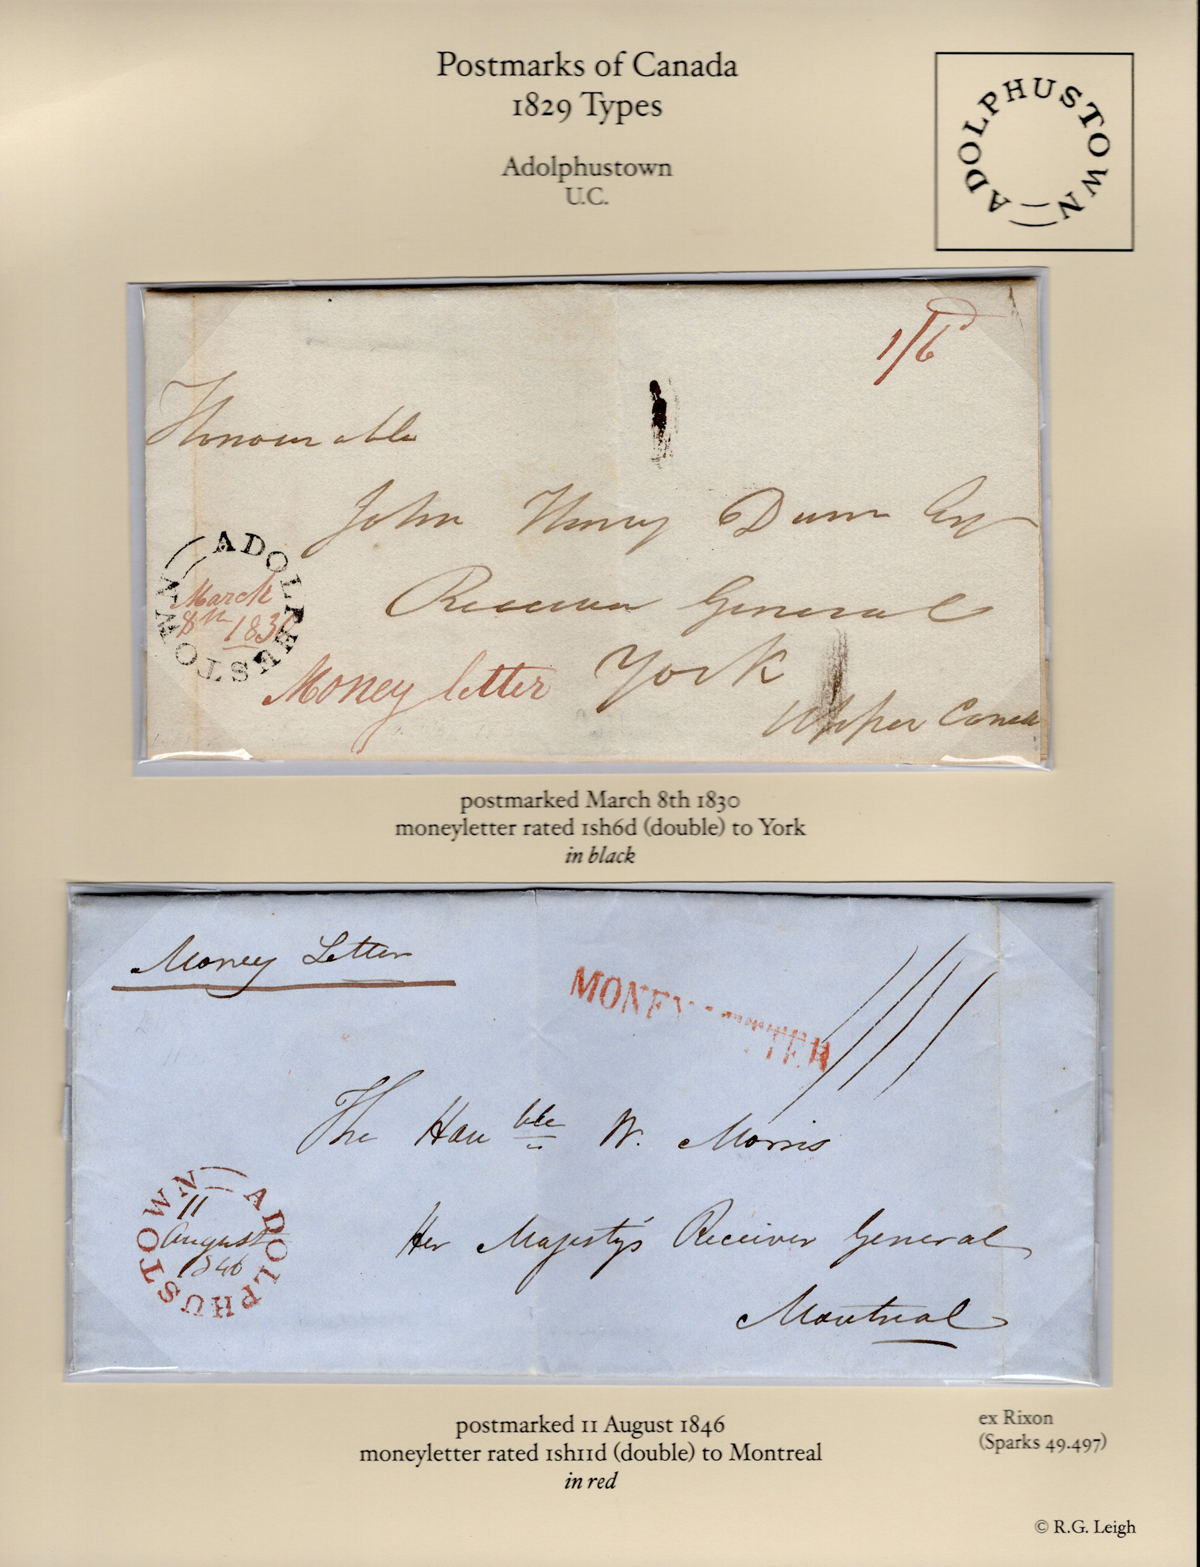 Postmarks of Canada
1829 Types
Adolphustown
U.C.
ADOLPHUSTOWN
1/6d
Honourable
John Henry Dunn Esqr
Receiver General
York
Upper Canada
ADOLPHUSTOWN
March
8th 1830
Money letter
postmarked March 8th 1830
moneyletter rated 1sh6d (double) to York
in black
Money Letter
MONEY LETTER
The Honble W. Morris
Her Majesty's Receiver General
Montreal
ADOLPHUSTOWN
11
August
1846
postmarked 11 August 1846
moneyletter rated 1sh11d (double) to Montreal
in red
ex Rixon
(Sparks 49.497)
© R.G. Leigh